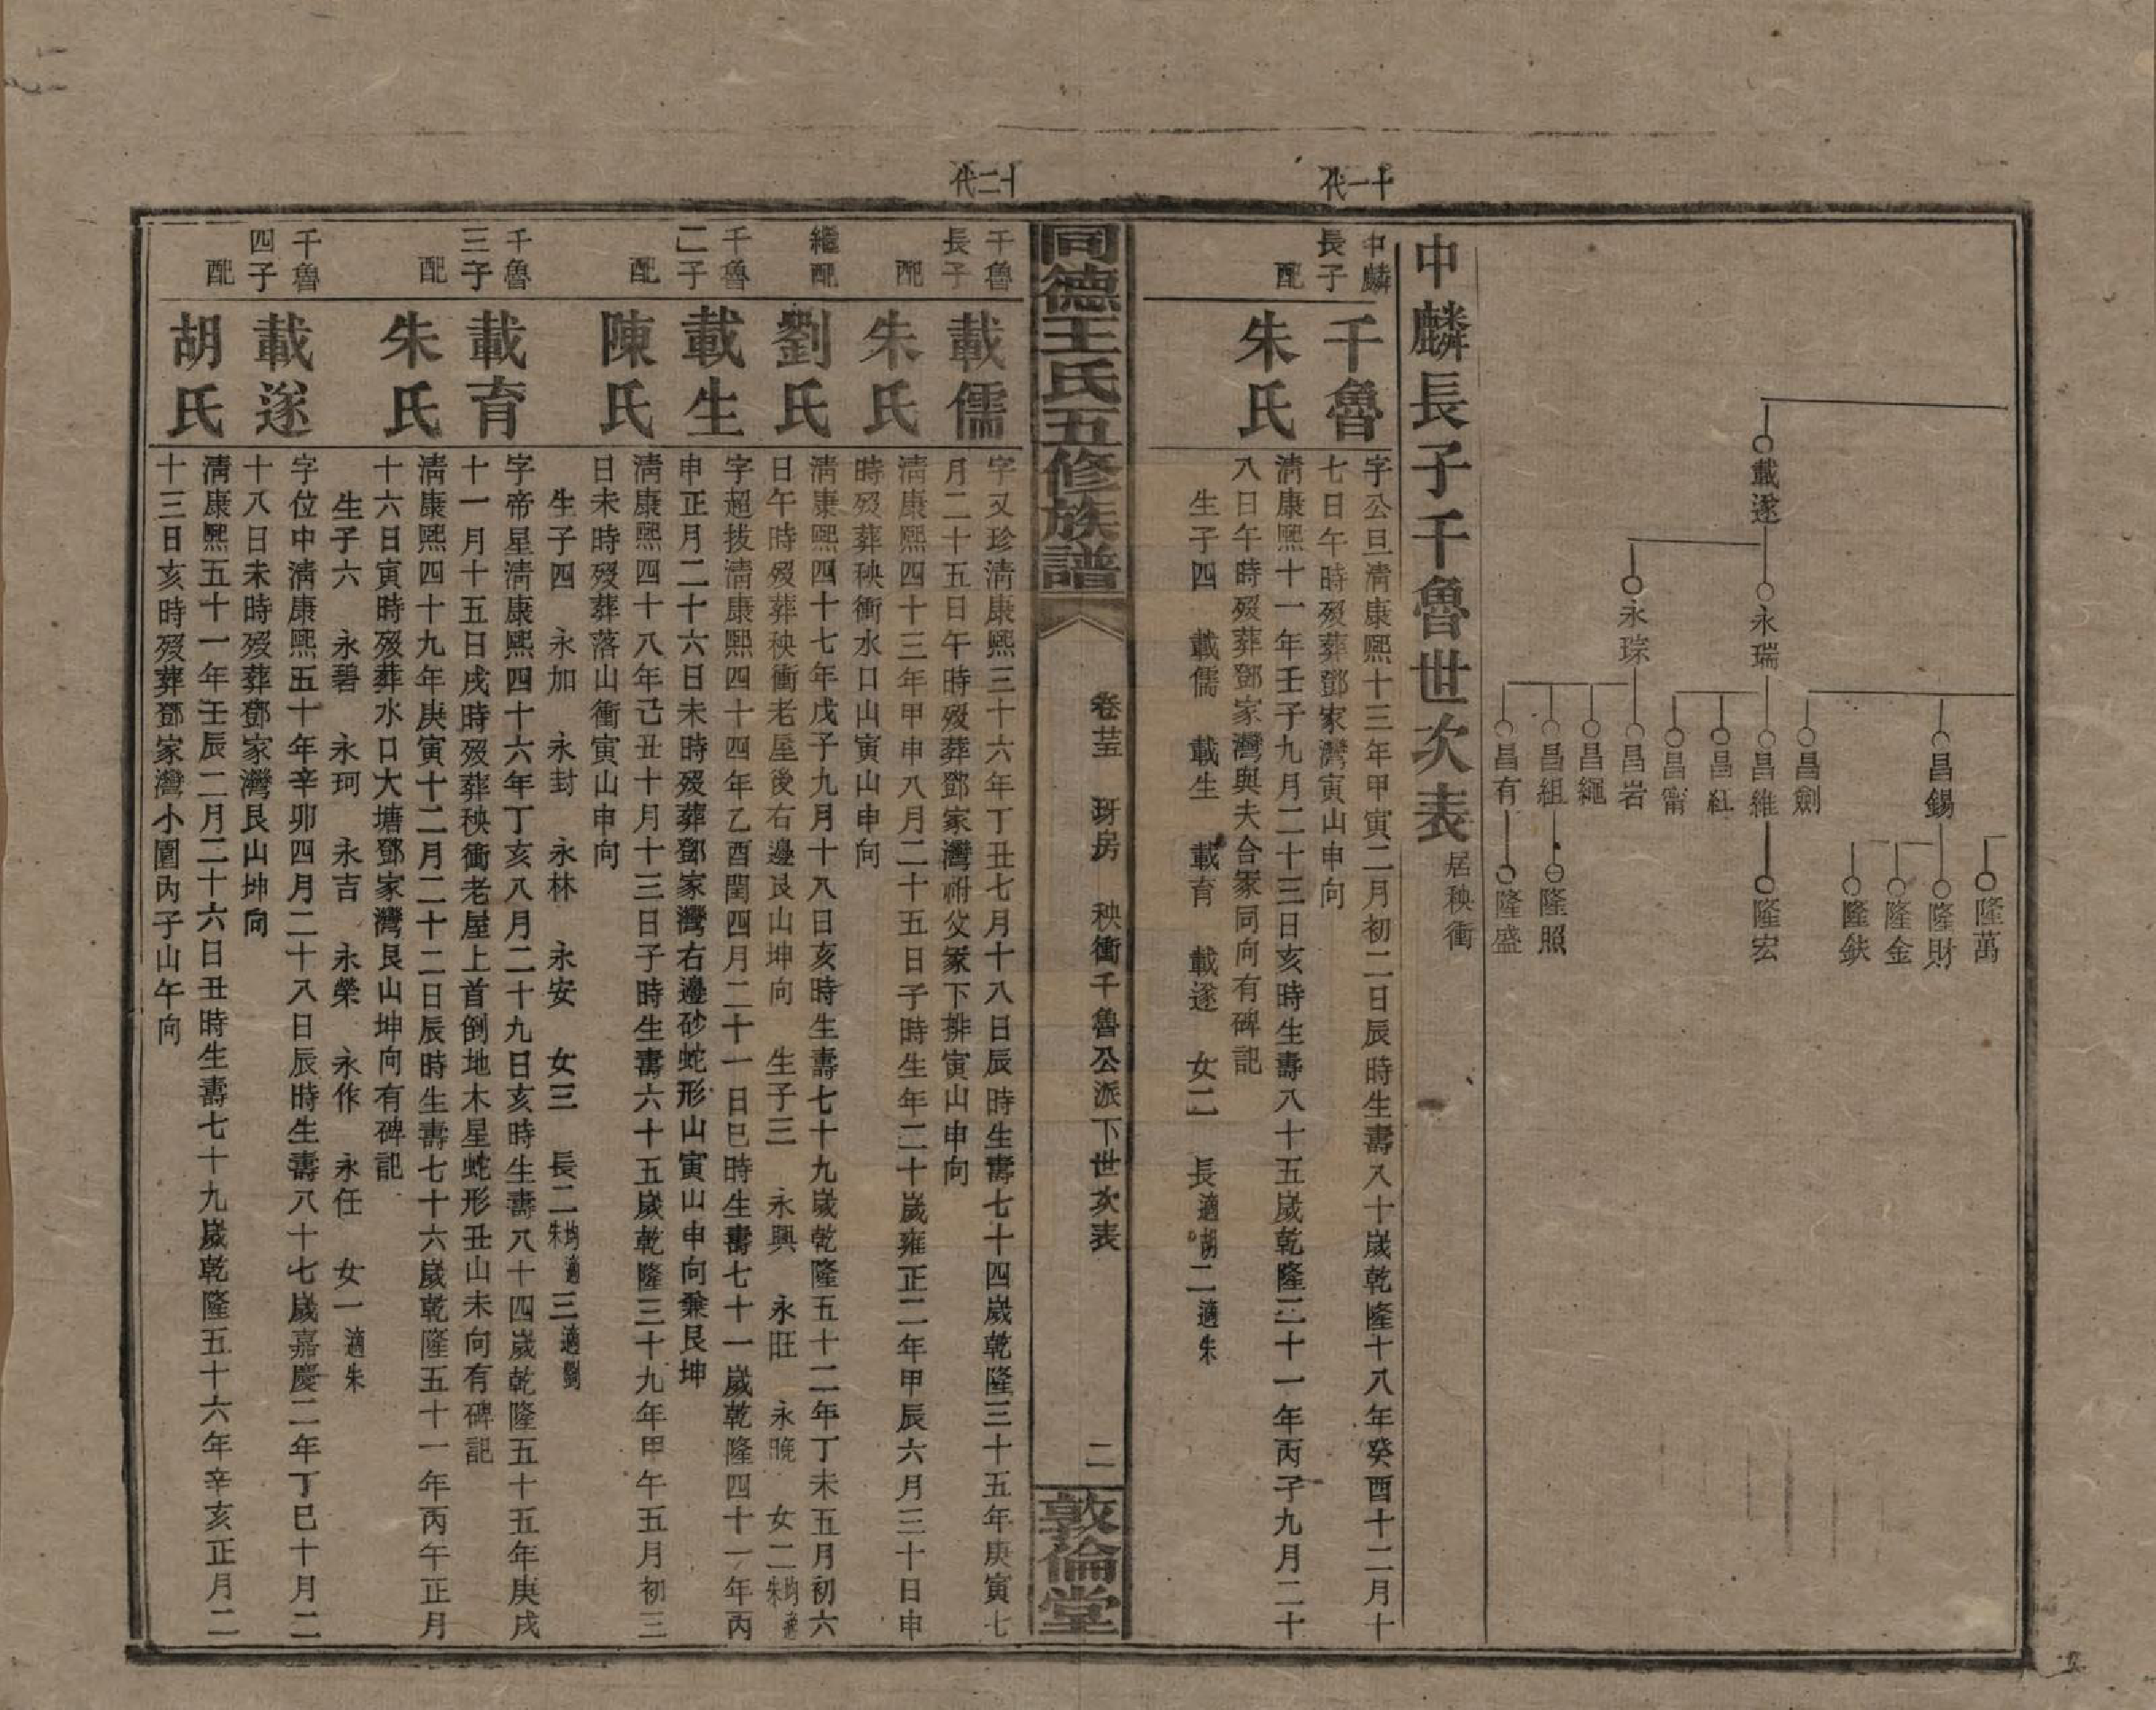 十一代
十二代
載遂
永瑞
永琮
昌錫
昌劍
昌維
昌紅
昌甯
昌岩
昌繩
昌組
昌有
隆萬
隆財
隆金
隆鈌
隆宏
隆照
隆盛
中麟長子千魯世次表 居秧衝
中麟長子
千魯
字公旦清康熙十三年甲寅二月初二日辰時生壽八十歲乾隆十八年癸酉十二月十
七日午時歿葬鄧家灣寅山申向
配
朱氏
清康熙十一年壬子九月二十三日亥時生壽八十五歲乾隆二十一年丙子九月二十
八日午時歿葬鄧家灣與夫合冢同向有碑記
生子四 載儒 載生 載育 載遂 女二 長適胡 二適朱
同德王氏五修族譜
卷 玡房 秧衝千魯公派下世次表
二
敦倫堂
千魯長子
載儒
字文珍清康熙三十六年丁丑七月十八日辰時生壽七十四歲乾隆三十五年庚寅七
月二十五日午時歿葬鄧家灣祔父冢下排寅山申向
配
朱氏
清康熙四十三年甲申八月二十五日子時生年二十歲雍正二年甲辰六月三十日申
時歿葬秧衝水口山寅山申向
繼配
劉氏
清康熙四十七年戊子九月十八日亥時生壽七十九歲乾隆五十二年丁未五月初六
日午時歿葬秧衝老屋後右邊艮山坤向 生子三 永興 永旺 永晚 女二均適朱
千魯二子
載生
字超拔清康熙四十四年乙酉閏四月二十一日巳時生壽七十一歲乾隆四十一年丙
申正月二十六日未時歿葬鄧家灣右邊砂蛇形山寅山申向兼艮坤
配
陳氏
清康熙四十八年己丑十月十三日子時生壽六十五歲乾隆三十九年甲午五月初三
日未時歿葬落山衝寅山申向
生子四 永加 永封 永林 永安 女三 長二均適朱 三適劉
千魯三子
載育
字帝星清康熙四十六年丁亥八月二十九日亥時生壽八十四歲乾隆五十五年庚戌
十一月十五日戌時歿葬秧衝老屋上首倒地木星蛇形丑山未向有碑記
配
朱氏
清康熙四十九年庚寅十二月二十二日辰時生壽七十六歲乾隆五十一年丙午正月
十六日寅時歿葬水口大塘鄧家灣艮山坤向有碑記
生子六 永碧 永珂 永吉 永榮 永作 永任 女一適朱
千魯四子
載遂
字位中清康熙五十年辛卯四月二十八日辰時生壽八十七歲嘉慶二年丁巳十月二
十八日未時歿葬鄧家灣艮山坤向
配
胡氏
清康熙五十一年壬辰二月二十六日丑時生壽七十九歲乾隆五十六年辛亥正月二
十三日亥時歿葬鄧家灣小園內子山午向